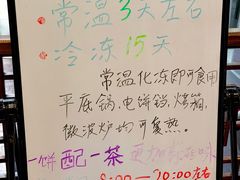 常温3天左右
冷冻15天
常温化冻即可食用
平底锅、电饼铛、烤箱、
微波炉均可复热。
一饼配一茶
8:00—20:00左右